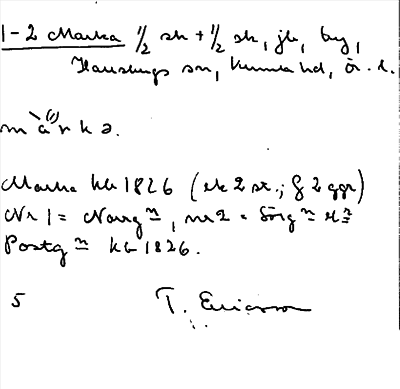 1-2 Marka 1/2 sk + 1/2 sk, jb, by,
Hardemo sn, Kumla hd, Ör. l.
màrka.
Marka kb 1826 (sk 2 st.; § 2 ggr)
Nr 1 = Norrg~, nr 2 =
Postg~ kb 1826.
5 T. Ericsson